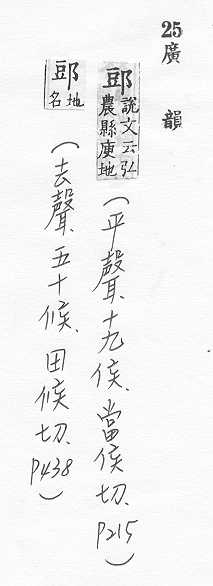 25廣韻
郖說文云弘農縣庾地(平聲、十九侯、當侯切、P215)
郖地名(去聲、五十候、田候切、P438)